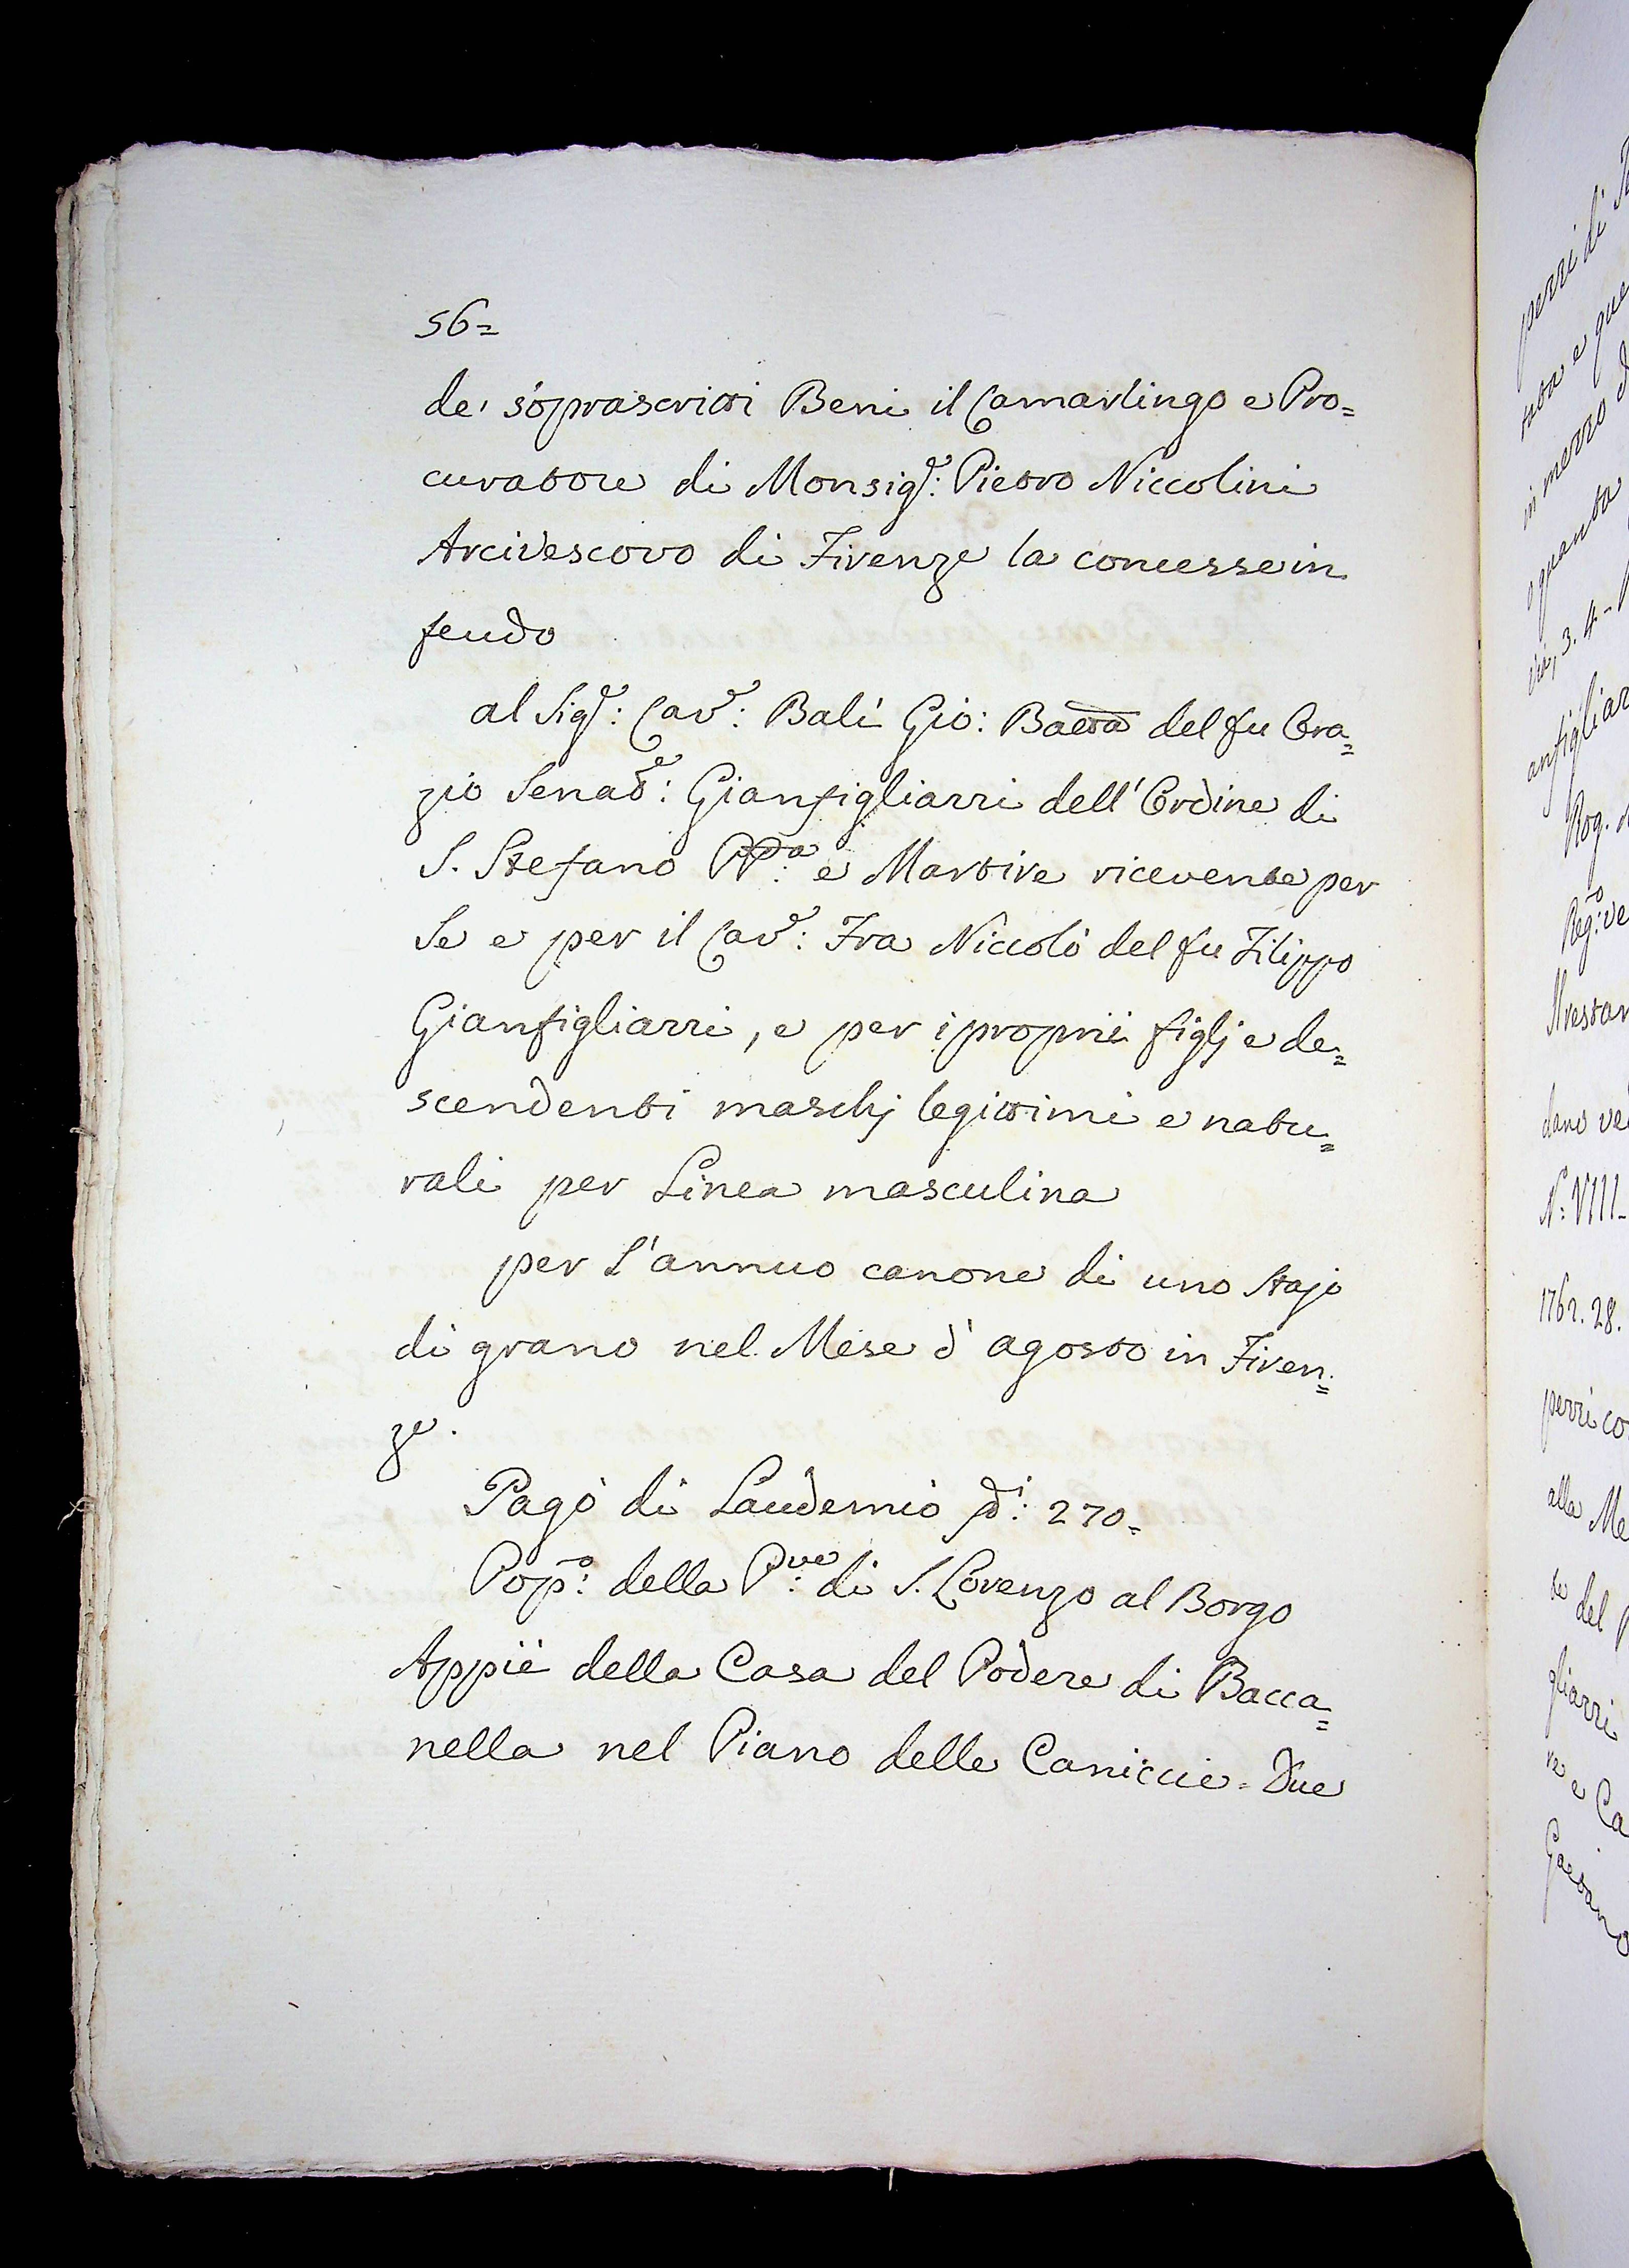 56=
de' soprascritti Beni il Camarlingo e Pro=
curatore di Monsig.r: Pietro Niccolini
Arcivescovo di Firenze la concesse in
feudo
al Sig.r: Cav.e: Balì Gio: Batta del fu Ora=
zio Senat.e: Gianfigliazzi dell'Ordine di
S. Stefano PP.a: e Martire ricevente per
Se e per il Cav.e: Fra Niccolò del fu Filippo
Gianfigliazzi, e per i proprii figlj e de=
scendenti maschj legittimi e natu=
rali per Linea masculina
per l'annuo canone di uno Stajo
di grano nel Mese d'agosto in Firen=
ze.
Pagò di Laudemio 270=
Pop.o: della P.ve: di S. Lorenzo al Borgo
Appiè della Casa del Podere di Bacca=
nella nel Piano delle Caniccie = Due
perzi di
in mezzo
3. 4=
Rog.
Reg.o:
N.o VIII=
1762. 28.
pezzi co
alla Me
te del
gliazzi
re e Ca
Gaetano